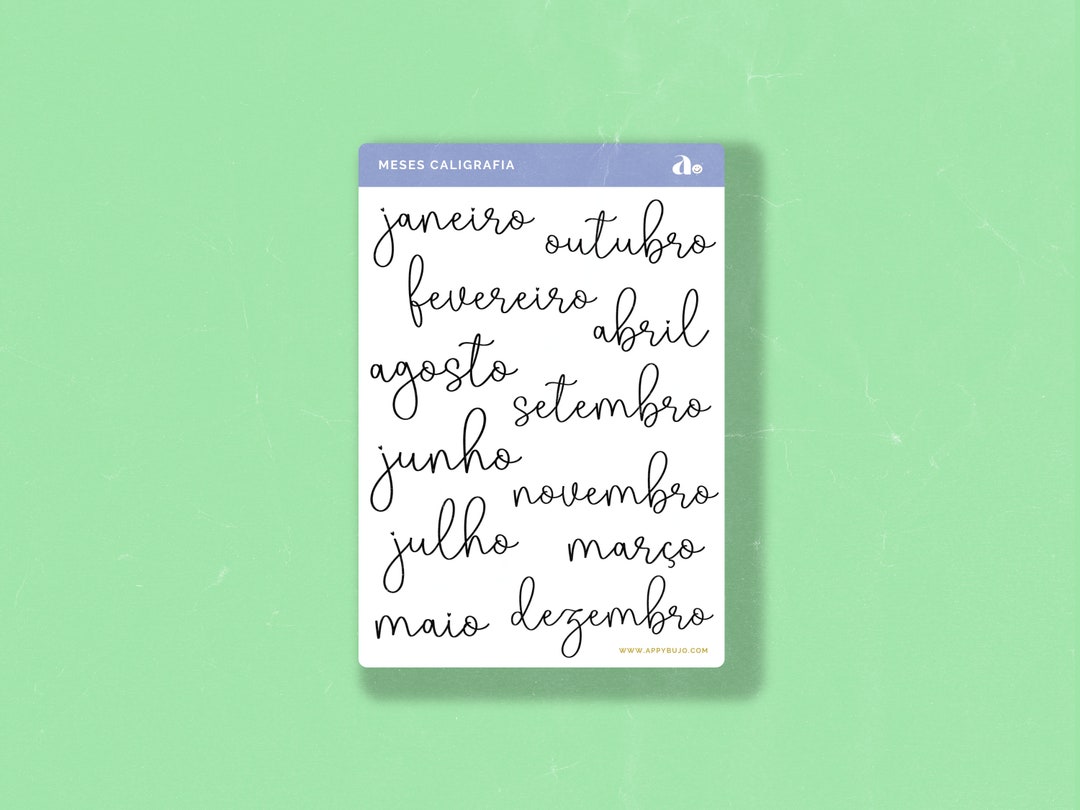 MESES CALIGRAFIA
a
janeiro
outubro
fevereiro
abril
agosto
setembro
junho
novembro
julho
março
maio
dezembro
WWW.APPYBUJO.COM